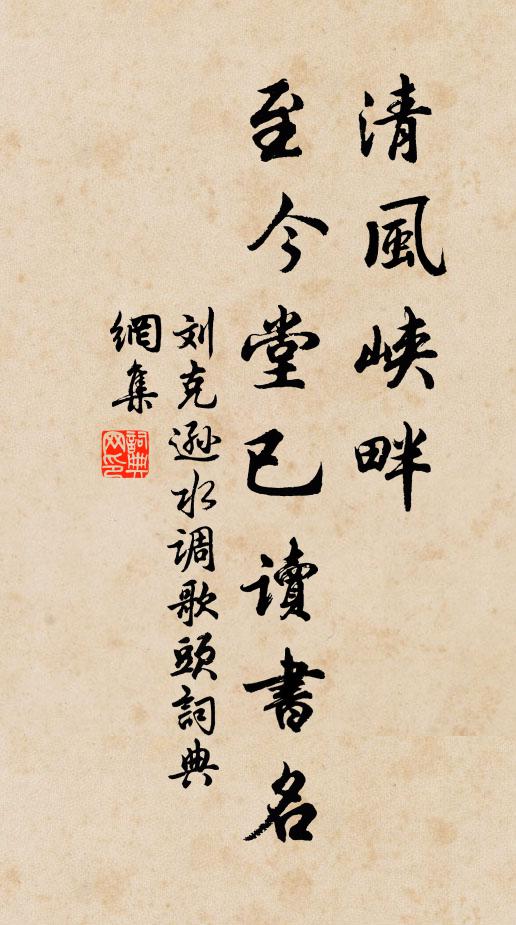 清風峽畔
至今堂已讀書名
刘克遜水调歌頭詞典
網集
詞典
网印